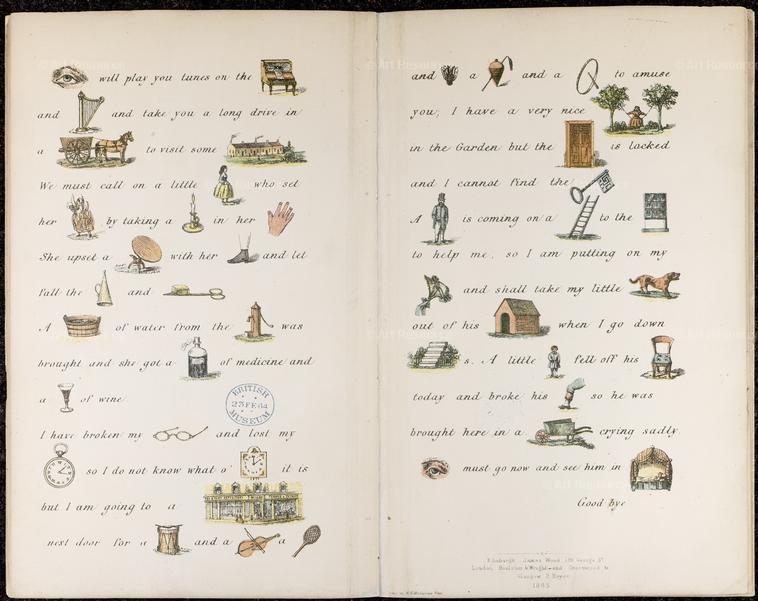 will play you tunes on the
and and take you a long drive in
a to visit some
We must call on a little who set
her by taking a in her
She upset a with her and let
fall the and
A of water from the was
brought and she got a of medicine and
a of wine
BRITISH
23 FE 64
MUSEUM
I have broken my and lost my
so I do not know what o' it is
but I am going to a
next door for a and a a
and a and a to amuse
you; I have a very nice
in the Garden but the is locked
and I cannot find the
A is coming on a to the
to help me, so I am putting on my
and shall take my little
out of his when I go down
s. A little fell off his
today and broke his so he was
brought here in a crying sadly.
must go now and see him in
Good bye
Edinburgh James Wood, George St
London, Houlston & Wright, and Groombridge &
Glasgow
1863
© Art Resource
© Art Resource